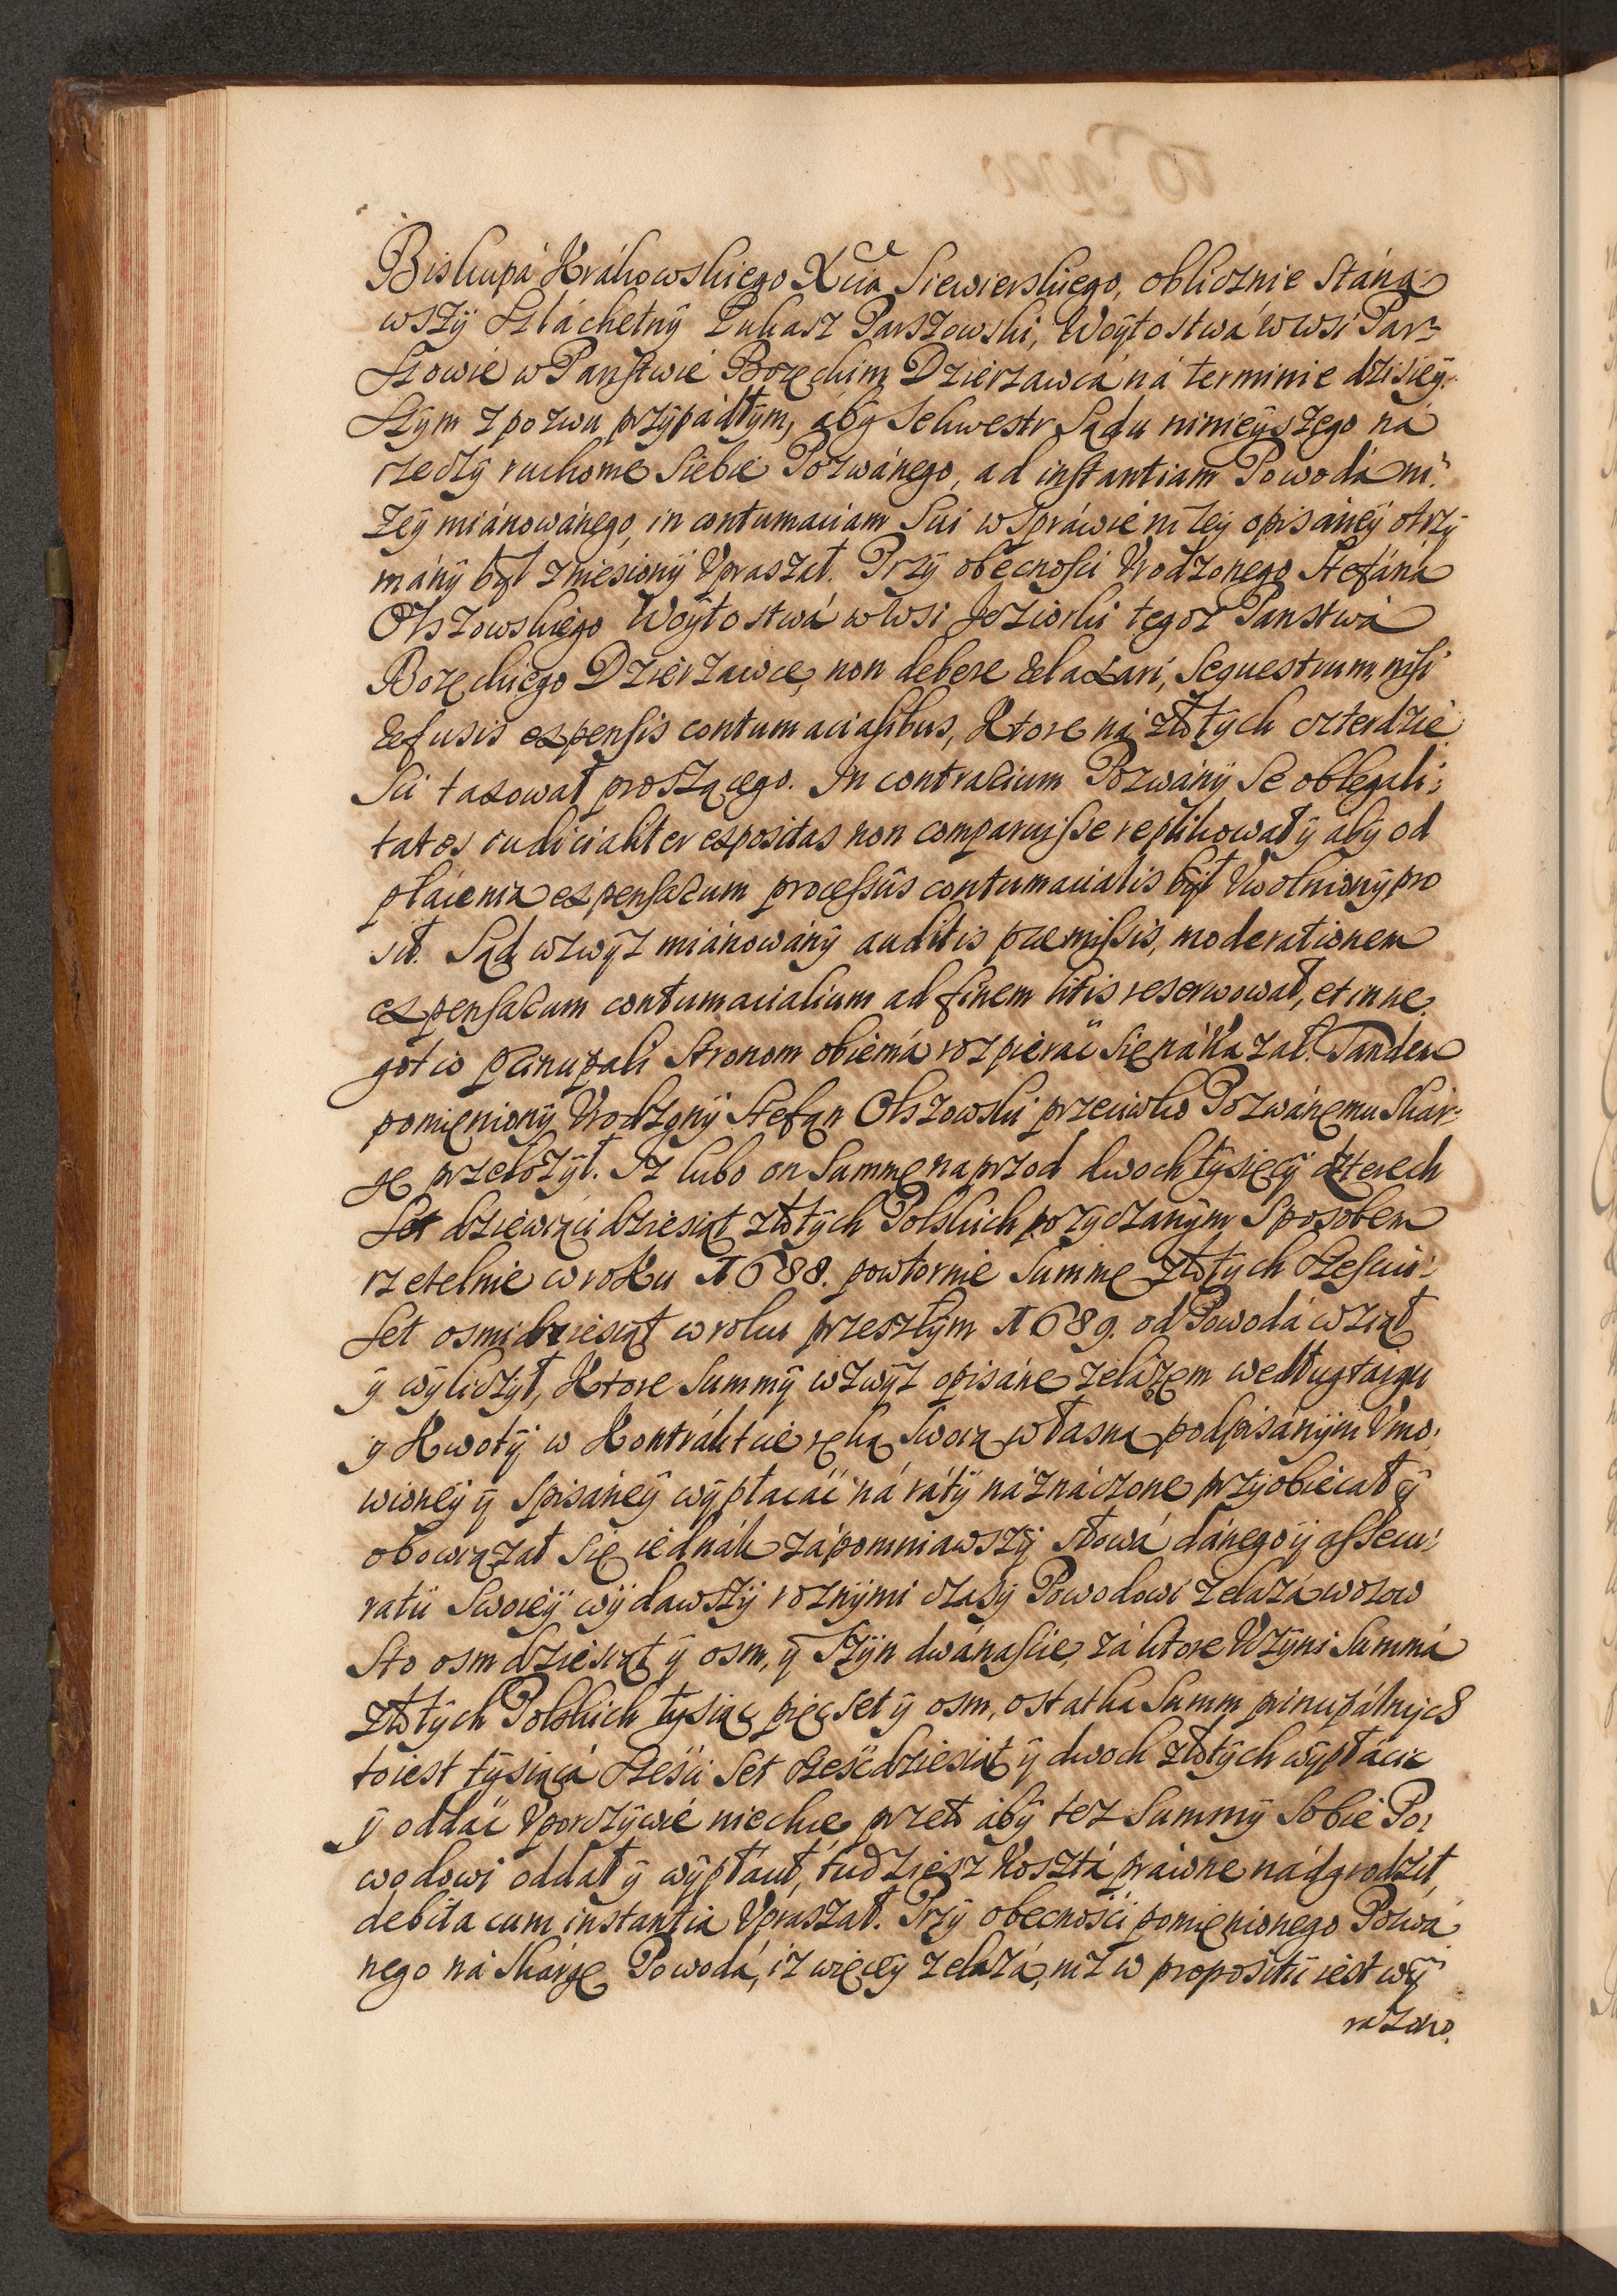 Biskupá Krákowskiego Xcia Siewierskiego, oblicznie Stáná-
wszÿ Szláchetnÿ Lukasz Parszowski, Woÿtostwá w wsi Par-
szowie w Panstwie Bozęckim Dzierzawcá ná terminie dzisieÿ-
szÿm z pozwu przÿpádłÿm, ábÿ Sekwestr Sądu ninieÿszego ná
rzeczÿ ruchome Siebie Pozwánego, ad instantiam Powodá ni-
zeÿ miánowánego, in contumaciam Sui w Spráwie nizeÿ opisáneÿ otrzÿ
mánÿ bÿł zniesionÿ Vpraszał. Przÿ obecnosci Vrodzonego Stefáná
Olszowskiego Woÿtostwá w wsi Jeziorki tegoz Panstwá
Bozęckiego Dzierzawce, non debere relaxari, Sequestrum, nisi
refusis expensis contumacialibus, Ktore ná złotÿch czterdzie
sci taxował proszącego. In contrarium Pozwánÿ Se ob legali-
tates iudicialiter expositas non comparuisse replikował ÿ ábÿ od
płácenia expensarum processûs contumacialis bÿł Vwolnionÿ pro
sił. Sąd wzwÿz miánowánÿ auditis præmissis, moderationem
expensarum contumacialium ad finem litis reserwował, et in ne-
gotio principali Stronom obiemá rozpieráć Się nákazał. Tandem
pomienionÿ Vrodzonÿ Stefan Olszowski przeciwko Pozwánemu Skar-
gę przełozÿł. Iz lubo on Summę naprzod dwoch tÿsięcÿ czterech
Set dziewiącidziesiąt złotÿch Polskich pozÿczanÿm Sposobem
rzetelnie w roku 1688. powtornie Summę złotÿch szesciu-
Set osmidziesiąt w roku przeszłÿm 1689. od Powodá wziął
ÿ wÿliczÿł, Ktore Summÿ wzwÿz opisáne zelázem według targu
ÿ Kwotÿ w Kontrákcie ręką Swoią własną podpisánÿm Vmo-
wioneÿ ÿ Spisáneÿ wÿpłacáć ná rátÿ náznáczone przÿobiecał ÿ
obowiązał Się iednák zápomniawszÿ słowá dánego ÿ assecu-
ratii Swoieÿ wÿdawszÿ roznÿmi czasÿ Powodowi zelázá wozow
Sto osmdziesiąt ÿ osm, ÿ szÿn dwánascie, zá ktore Vczÿni Summá
złotÿch Polskich tÿsiąc pięcset ÿ osm, ostatka Summ principálnÿch
to iest tÿsiącá szesci Set szesćdziesiąt ÿ dwoch złotÿch wÿpłácic
ÿ oddáć Vporczÿwie niechce, przeto ábÿ tez Summÿ Sobie Po-
wodowi oddał ÿ wÿpłácił, tudziesz Kosztá práwne nádgrodził,
debita cum instantia Vpraszał. Przÿ obecnosci pomienionego Pozwá
nego ná Skárgę Powodá, iz więceÿ zelázá, niz w propositii iest wÿ
razono.